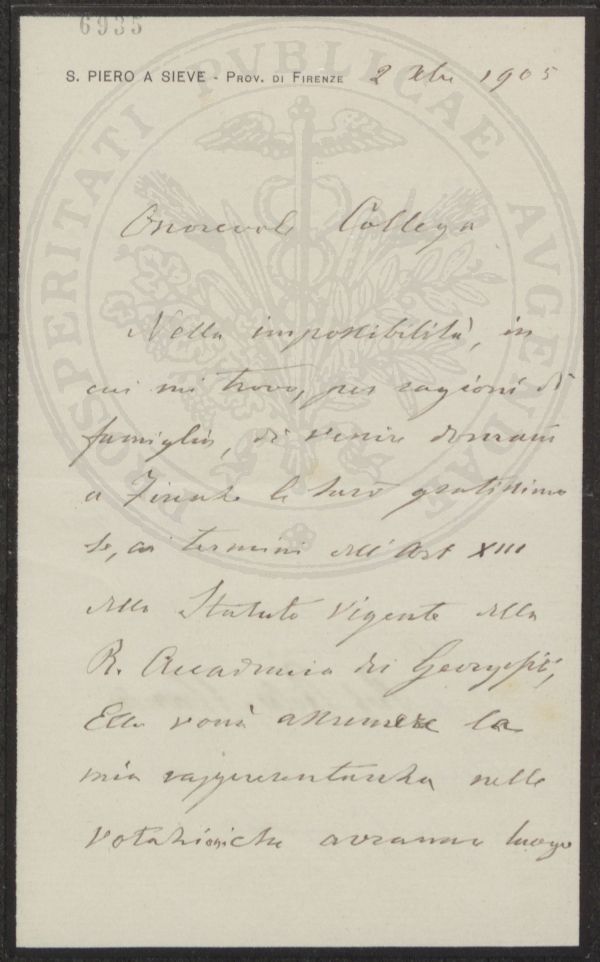 6935
S. PIERO A SIEVE - PROV. DI FIRENZE 2 Xbre 1905
PROSPERITATI PVBLICAE AVGENDAE
Onorevole Collega
Nella impossibilità, in
cui mi trovo, per ragioni di
famiglia, di venire domani
a Firenze le sarò gratissimo
se, ai termini dell' Art XIII
dello Statuto vigente della
R. Accademia dei Georgofili,
Ella vorrà assumere la
mia rappresentanza nelle
votazioni che avranno luogo